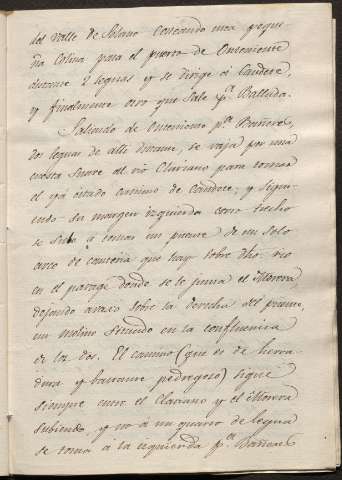 del valle de Solano costeando una peque
ña Colina para el puerto de Onteniente
durante 2 leguas y se dirige á Caudete,
y finalmente otro que sale p.ª Ballada.
Saliendo de Onteniente p.ª Bañeres,
dos leguas de alli distante, se vaja por una
cuesta suave al rio Clariano para tomar
el yá citado camino de Caudete; y siguien
do su margen izquierda corto trecho
se sube a tomar un puente de un solo
arco de canteria que hay sobre dho. rio
en el parage donde se le junta el
dejando atras sobre la derecha del puente,
un molino situado en la confluencia
de los dos. El camino (que es de herra
dura y bastante pedregoso) sigue
siempre entre el Clariano y el
subiendo, y no á un quarto de legua
se toma á la izquierda p.ª Bañeres